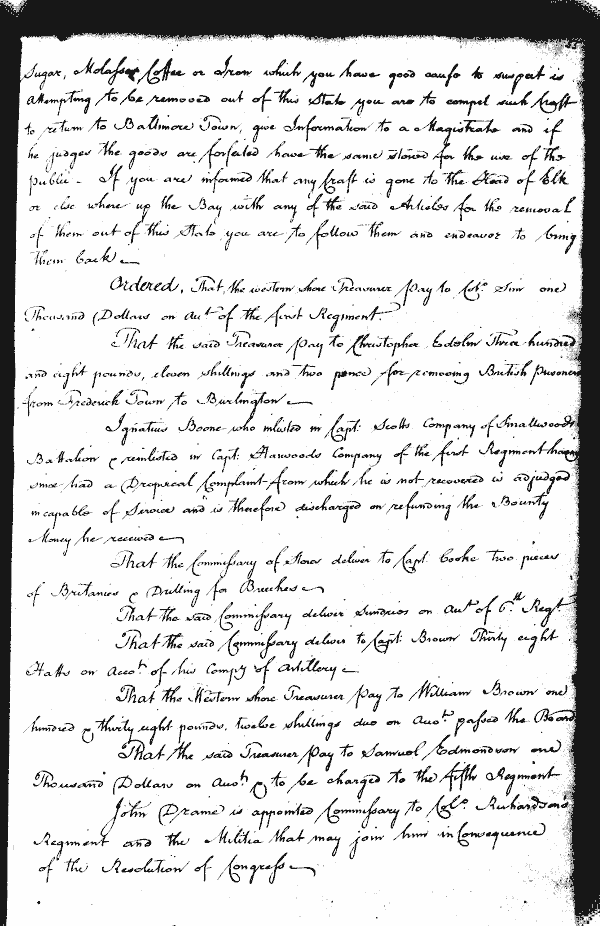 Sugar, Molasses Coffee or Iron which you have good cause to suspect is
attempting to be removed out of this State you are to compel such Craft
to return to Baltimore Town, give Information to a Magistrate and if
he judges the goods are forfeited have the same stored for the use of the
Public. If you are informed that any Craft is gone to the Head of Elk
or else where up the Bay with any of the said Articles for the removal
of them out of this State you are to follow them and endeavor to bring
them back
Ordered, That the western shore Treasurer Pay to Colo. Sim one
Thousand Dollars on Acct of the first Regiment
That the said Treasurer pay to Christopher Edelin Three hundred
and eight pounds, eleven shillings and two pence for removing British prisoners
from Frederick Town to Burlington
Ignatius Boone who inlisted in Capt. Scotts Company of Smallwoods
Battalion & reinlisted in Capt. Company of the first Regiment having
since had a Dropsical Complaint from which he is not recovered is adjudged
incapable of Service and is therefore discharged on refunding the Bounty
Money he received
That the Commissary of Stores deliver to Capt. Cooke two pieces
of Britanies & Drilling for Breeches
That the said Commissary deliver Sundries on Acct of 6th Regt
That the said Commissary deliver to Capt. Brown Thirty eight
Hatts on Acco.t of his Compy of Artillery
That the Western shore Treasurer Pay to William Brown one
hundred & thirty eight pounds, twelve shillings due on Acco.t passed the Board
That the said Treasurer Pay to Samuel Edmondson one
Thousand Dollars on Acco.t & to be charged to the fifth Regiment
John is appointed Commissary to Colo. Richardson's
Regiment and the Militia that may join him in Consequence
of the Resolution of Congress